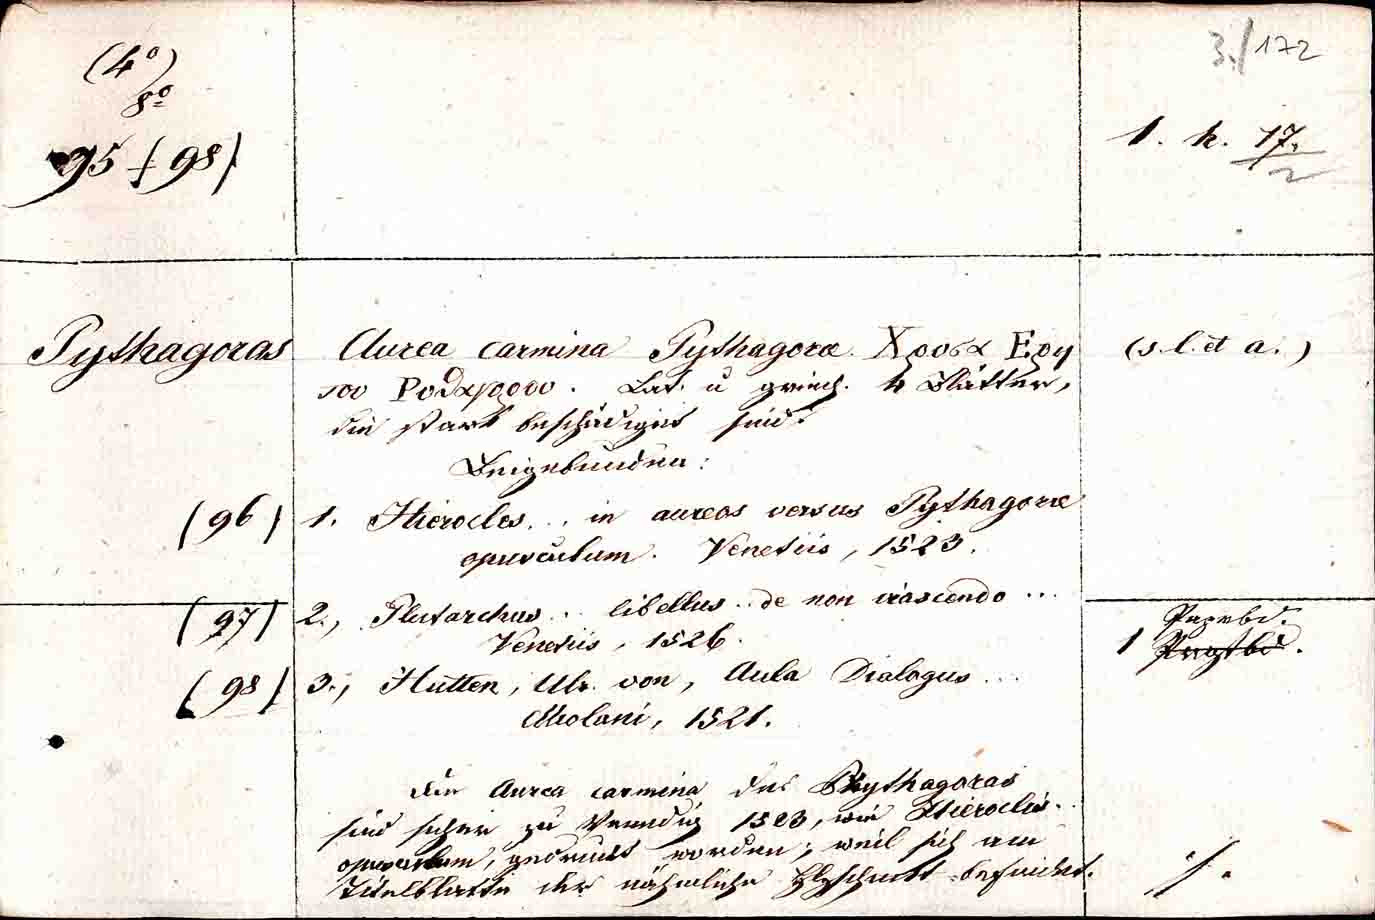 (4°)
8°
95 + (98)
3./172
1. k. 17.
2
Pythagoras
Aurea carmina Pythagoræ. Χρυσα Επη
του Lat. u griech. 4 Blätter,
die stark beschädiget sind.
Beigebunden:
(s. l. et a.)
(96) 1. Hierocles... in aureos versus Pythagoræ
opusculum. Venetiis, 1523.
(97) 2., Plutarchus.. libellus.. de non irascendo ...
Venetiis, 1526.
1 Paprbd.
(98) 3., Hutten, Ulr. von, Aula Dialogus ...
1521.
Die Aurea carmina des Pythagoras
sind sicher zu Venedig 1523, wie Hieroclis
opusculum, gedruckt worden; weil sich am
Titelblatte der nähmliche Hlzschnitt befindet.
/.